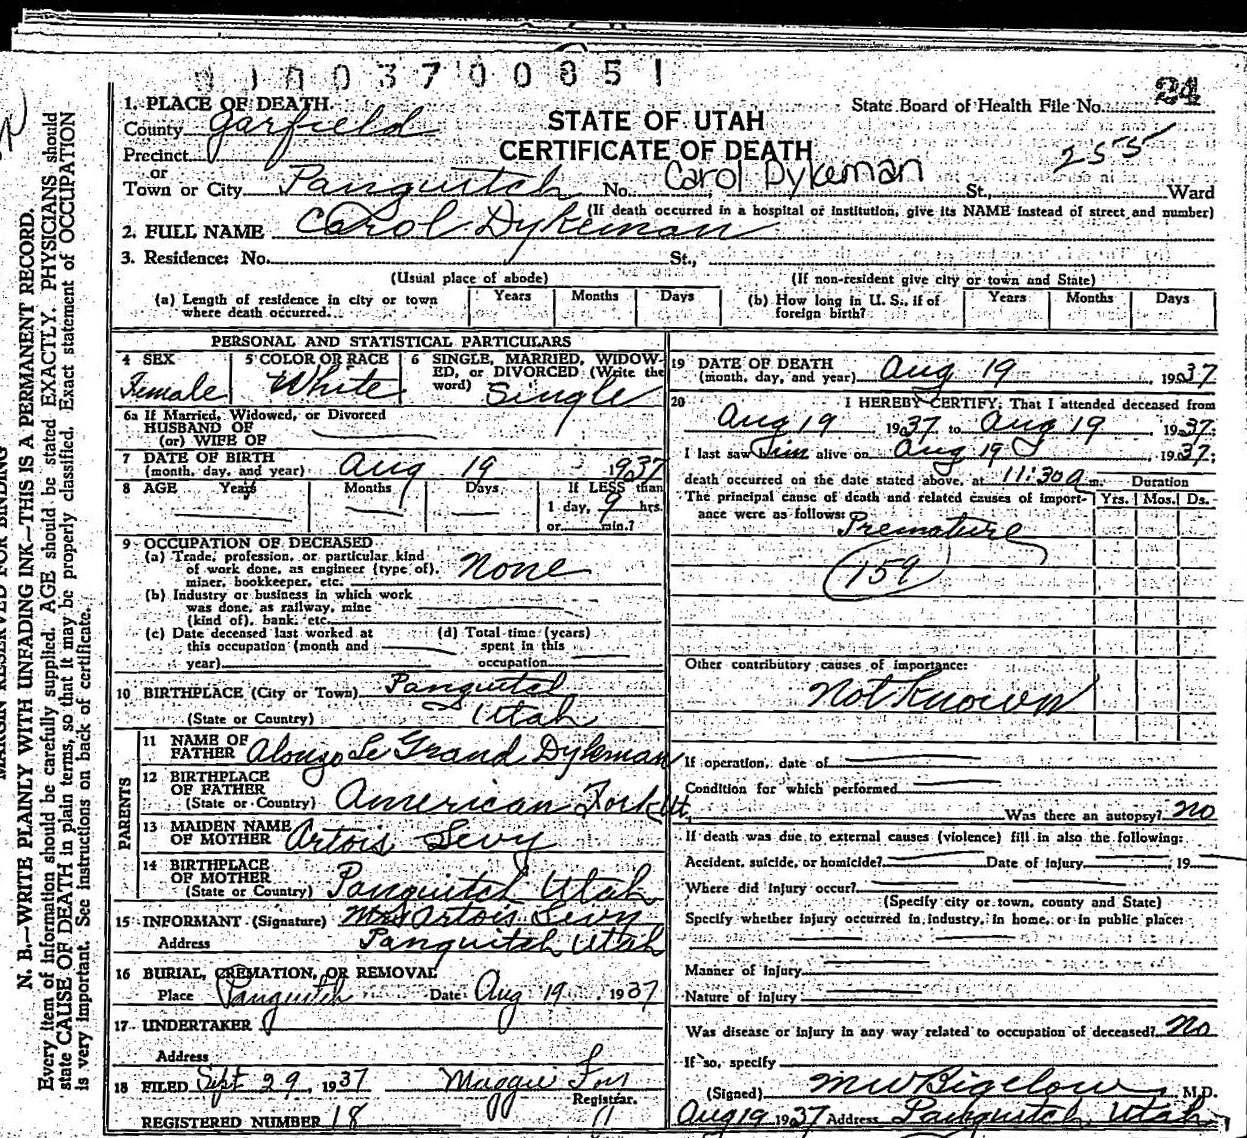 0 1 0 0 3 7 0 0 8 5 1
24
1. PLACE OF DEATH
State Board of Health File No.
County Garfield
STATE OF UTAH
Precinct
CERTIFICATE OF DEATH
255
or
Town or City Panguitch No. Carol Dykeman St, Ward
(If death occurred in a hospital or institution, give its NAME instead of street and number)
2. FULL NAME Carol Dykeman
3. Residence: No. St.,
(Usual place of abode) (If non-resident give city or town and State)
(a) Length of residence in city or town where death occurred Years Months Days
(b) How long in U. S., if of foreign birth? Years Months Days
PERSONAL AND STATISTICAL PARTICULARS
4 SEX Female
5 COLOR OR RACE White
6 SINGLE, MARRIED, WIDOWED, or DIVORCED (Write the word) Single
6a If Married, Widowed, or Divorced
HUSBAND OF
(or) WIFE OF
7 DATE OF BIRTH
(month, day, and year) Aug 19 1937
8 AGE Years Months Days If LESS than
1 day, 9 hrs.
or min.?
9 OCCUPATION OF DECEASED
(a) Trade, profession, or particular kind
of work done, as engineer (type of), None
miner, bookkeeper, etc.
(b) Industry or business in which work
was done, as railway, mine
(kind of), bank, etc.
(c) Date deceased last worked at
this occupation (month and
year)
(d) Total time (years)
spent in this
occupation
10 BIRTHPLACE (City or Town) Panguitch
(State or Country) Utah
PARENTS
11 NAME OF
FATHER Alonzo Le Grand Dykeman
12 BIRTHPLACE
OF FATHER
(State or Country) American Fork Ut.
13 MAIDEN NAME
OF MOTHER Artois Levy
14 BIRTHPLACE
OF MOTHER
(State or Country) Panguitch Utah
15 INFORMANT (Signature) Mrs Artois Levy
Address Panguitch Utah
16 BURIAL, CREMATION, OR REMOVAL
Place Panguitch Date Aug 19 1937
17 UNDERTAKER
Address
18 FILED Sept 29, 1937 Maggie
Registrar.
REGISTERED NUMBER 18
19 DATE OF DEATH
(month, day, and year) Aug 19, 1937
20 I HEREBY CERTIFY, That I attended deceased from
Aug 19 1937 to Aug 19 1937.
I last saw him alive on Aug 19, 1937;
death occurred on the date stated above, at 11:30 a m. Duration
The principal cause of death and related causes of import- Yrs. Mos. Ds.
ance were as follows:
Premature
159
Other contributory causes of importance:
Not Known
If operation, date of
Condition for which performed
Was there an autopsy? no
If death was due to external causes (violence) fill in also the following:
Accident, suicide, or homicide? Date of injury , 19
Where did injury occur?
(Specify city or town, county and State)
Specify whether injury occurred in industry, in home, or in public place:
Manner of injury
Nature of injury
Was disease or injury in any way related to occupation of deceased? No
If so, specify
(Signed) M W Bigelow, M.D.
Aug 19 1937 Address Panguitch, Utah
MARGIN RESERVED FOR BINDING
N. B.—WRITE PLAINLY WITH UNFADING INK—THIS IS A PERMANENT RECORD.
Every item of information should be carefully supplied. AGE should be stated EXACTLY. PHYSICIANS should
state CAUSE OF DEATH in plain terms, so that it may be properly classified. Exact statement of OCCUPATION
is very important. See instructions on back of certificate.